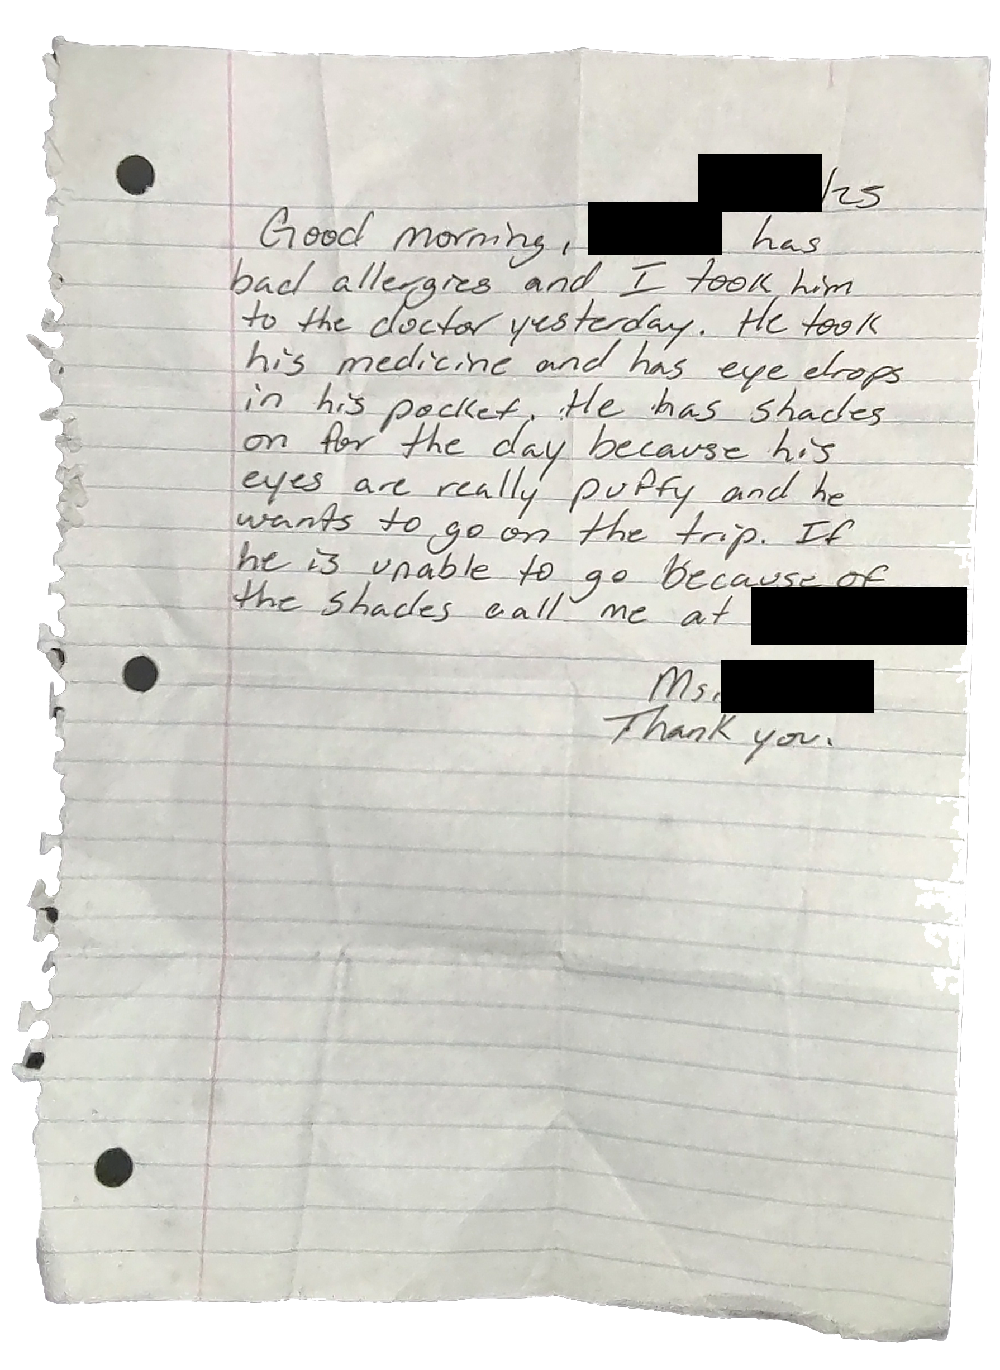 /25
Good morning, has
bad allergies and I took him
to the doctor yesterday. He took
his medicine and has eye drops
in his pocket. He has shades
on for the day because his
eyes are really puffy and he
wants to go on the trip. If
he is unable to go because of
the shades call me at
Ms.
Thank you.